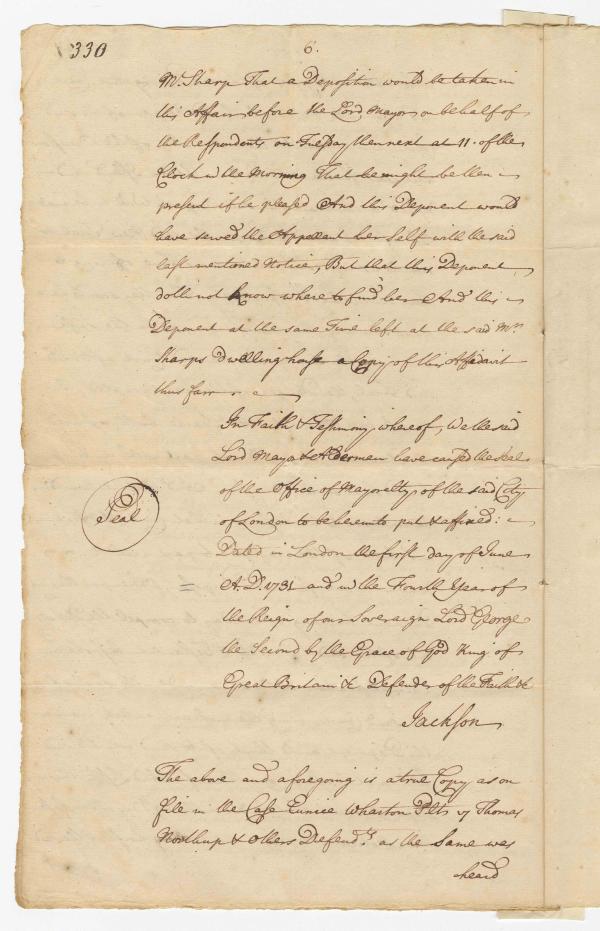 330
6.
Mr. Sharp That a Deposition would be taken in
this Affair before the Lord Mayor on behalf of
the Respondents on Tuesday then next at 11. of the
Clock in the Morning That he might be then
present if he pleased And this Deponent would
have served the Appellant her Self with the said
last mentioned Notice, But that this Deponent
doth not know where to find her And this
Deponent at the same Time left at the said Mr.
Sharps Dwelling house a Copy of this Affidavit
thus farr
In Faith & Testimony whereof, We the said
Lord Mayor & Aldermen have caused the Seal
of the Office of Mayorelty of the said City
of London to be hereunto put & affixed:
Seal
Dated in London the first day of June
A.D. 1731 and in the Fourth Year of
the Reign of our Sovereign Lord George
the Second by the Grace of God King of
Great Britain &c Defender of the Faith &c
Jackson
The above and aforegoing is a true Copy as on
file in the Case Eunice Wharton Plts v Thomas
Northup & Others Defendts. as the Same was
heard